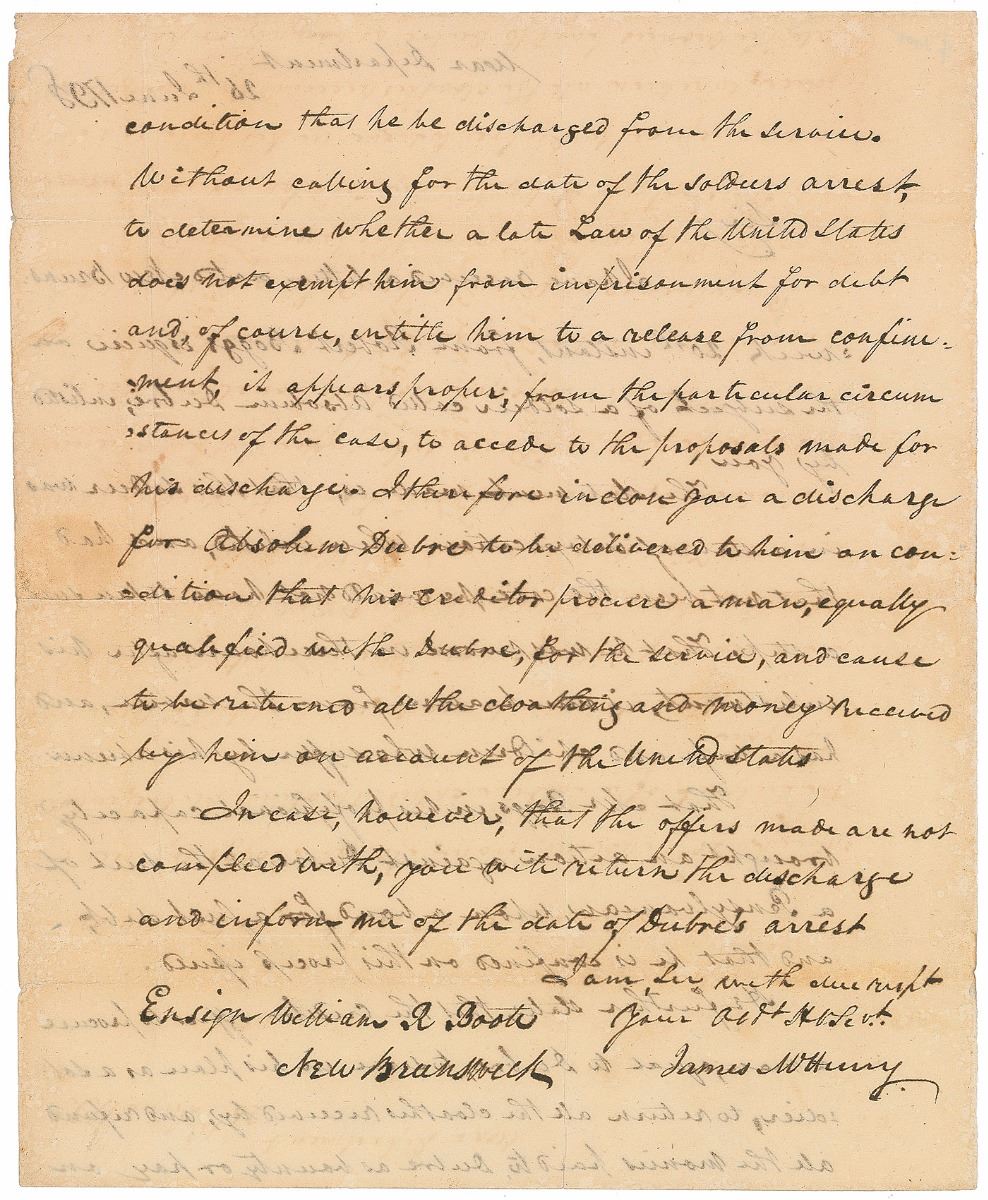 condition that he be discharged from the service.
Without calling for the date of the soldiers arrest,
to determine whether a late Law of the United States
does not exempt him from imprisonment for debt
and, of course, entitle him to a release from confine-
:ment, it appears proper, from the particular circum
:stances of the case, to accede to the proposals made for
his discharge. I therefore inclose you a discharge
for Absolum Dubre to be delivered to him on con:
:dition that his creditor procure a man, equally
qualified with Dubre, for the service, and cause
to be returned all the cloathing and money received
by him on account of the United States
In case, however, that the offers made are not
complied with, you will return the discharge
and inform me of the date of Dubre's arrest
I am, Sir with due respt
Ensign William R Boote Your Obdt Hb Sevt.
New Brunswick James McHenry
War Department
26th June 1798